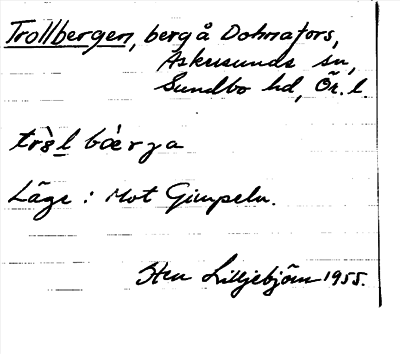 Trollbergen, berg å Dohnafors,
Askersunds sn,
Sundbo hd, Ör. l.
trò̤l bæ̀rga
Läge : Mot Gimpeln.
Sten Lilljebjörn 1955.